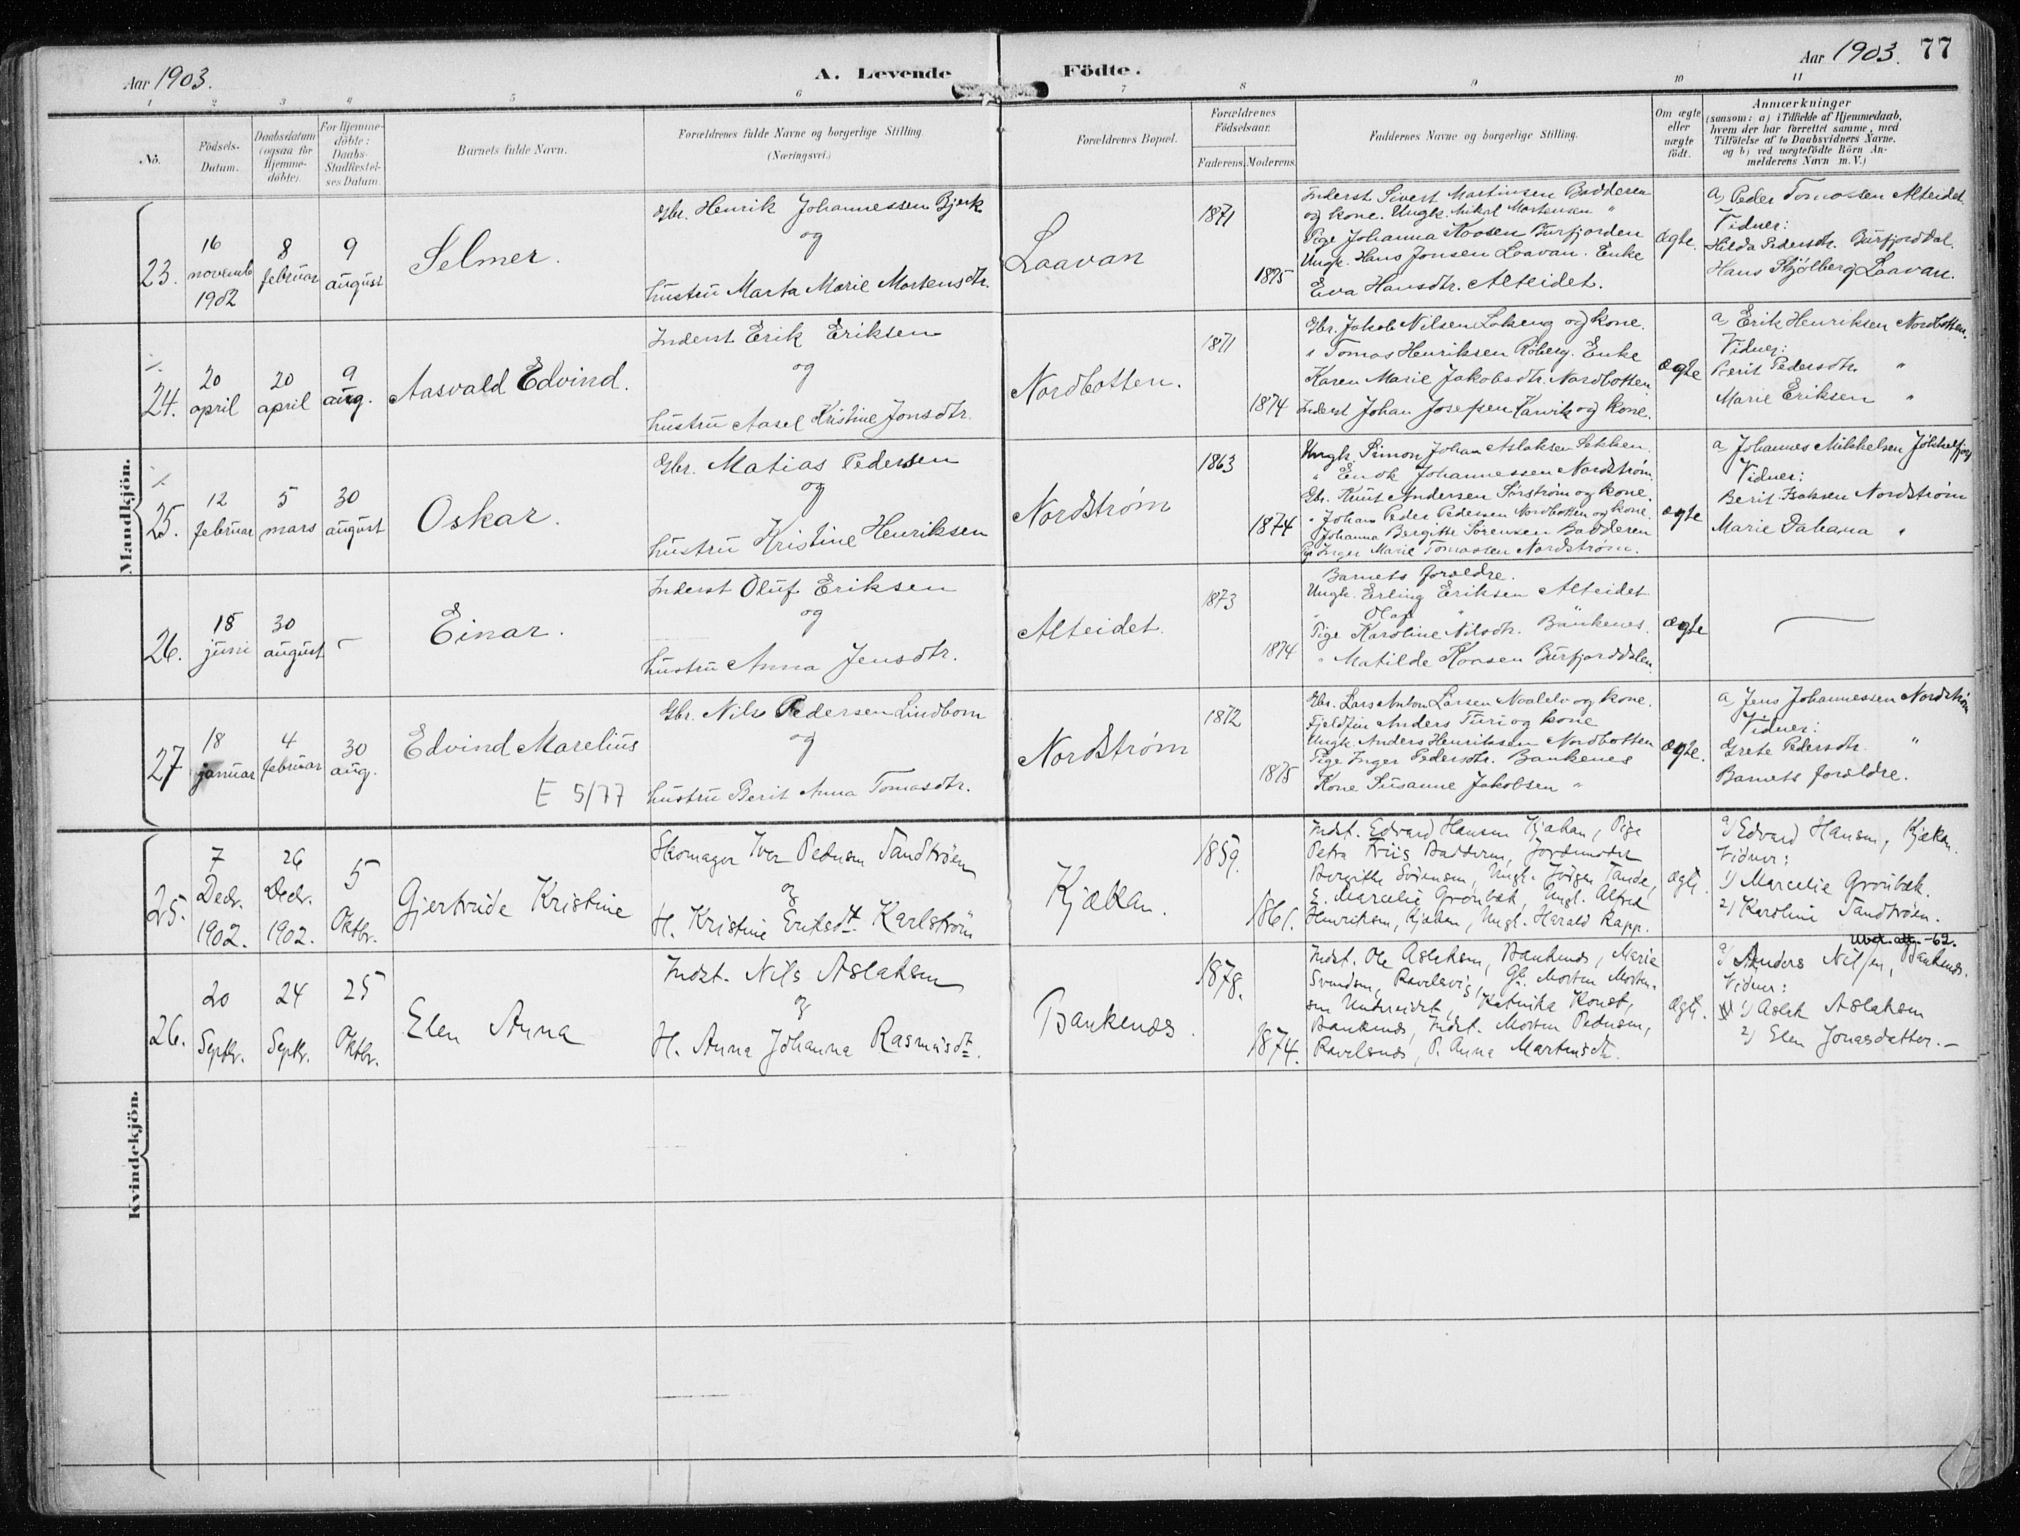 Aar 1903.
A. Levende Födte.
Aar 1903. 77
1 2 3 4 5 6 7 8 9 10 11
No.
Födsels-
Datum.
Daabsdatum
(ogsaa for
Hjemme-
döbte).
For Hjemme-
döbte:
Daabs-
Stadfæstel-
ses Datum.
Barnets fulde Navn.
Forældrenes fulde Navne og borgerlige Stilling
(Næringsvei.)
Forældrenes Bopæl.
Forældrenes
Födselsaar.
Faderens. Moderens.
Faddernes Navne og borgerlige Stilling.
Om ægte
eller
uægte
födt.
Anmærkninger
(saasom: a) i Tilfælde af Hjemmedaab,
hvem der har forrettet samme, med
Tilföielse af to Daabsvidners Navne.
og b) ved uægtefödte Börn An-
melderens Navn m. V.)
Mandkjön.
23.
16
novemb
1902
8
februar
9
august
Selmer.
Gbr. Henrik Johannessen Bjerk
og
hustru Marta Marie Mortensdtr.
Laavan
1871
1875
Inderst Sivert Martinsen Badderen
og kone. Ungk. Nikol Mortensen "
Pige Johanna Koosen Burfjorden
Ungk. Hans Jonsen Laavan. Enke
Eva Hansdtr. Alteidet.
ægte.
a, Peder Tomassen Alteidet.
Vidner:
Hilda Pedersdtr. Burfjorddal.
Hans Skjølberg Laavan.
24.
20
april
20
april
9
aug.
Aasvald Edvind.
Inderst Erik Eriksen
og
hustru Aasel Kristine Jonsdtr.
Nordbotten.
1871
1874
Gbr. Jakob Nilsen Lokeng og kone.
" Tomas Henriksen Røberg. Enke
Karen Marie Jakobsdtr. Nordbotten
Inderst Johan Josefsen Karvik og kone.
ægte
a, Erik Henriksen Nordbotten.
Vidner:
Berit Pedersdtr. "
Marie Eriksen "
25.
12
februar
5
mars
30
august
Oskar.
Gbr. Matias Pedersen
og
hustru Kristine Henriksen
Nordstrøm
1863
1874
Ungk. Simon Johan Aslaksen Sekken
" Enok Johannessen Nordstrøm
Gbr. Knut Andersen Sørstrøm og kone.
" Johan Peder Pedersen Nordbotten og kone.
Johanna Bergitte Sørensen Badderen
Pg. Inger Marie Tomassen Nordstrøm.
ægte
a, Johannes Mikkelsen Jøkkelfjord
Vidner:
Berit Isaksen Nordstrøm
Marie "
26.
18
juni
30
august
-
Einar.
Inderst Oluf Eriksen
og
hustru Anna Jensdtr.
Alteidet.
1873
1874
Barnets forældre.
Ungk. Erling Eriksen Alteidet
" Olaf "
Pige Karoline Nilsdtr. Bankenes.
" Matilde Koosen Burfjorddalen
ægte
27
18
januar
4
februar
30
aug.
Edvind Marelius
E 5/77
Gbr. Nils Pedersen Lindbom
og
hustru Berit Anna Tomasdtr.
Nordstrøm
1872
1875
Gbr. Lars Anton Larsen Nvalelv og kone.
Fjeldfin Anders Turi og kone
Ungk. Anders Henriksen Nordbotten
Pige Inger Pedersdtr. Bankenes
Kone Susanne Jakobsen "
ægte.
a, Jens Johannessen Nordstrøm
Vidner:
Grete Pedersdtr. "
Barnets forældre.
Kvindekjön.
25.
7
Decbr.
1902.
26
Decbr.
1902.
5
Oktbr.
Gjertrude Kristine
Skomager Iver Pedersen Tandtrøen
og
H. Kristine Eriksdt. Karlstrøm
Kjækan.
1859.
1861.
Indst. Edvard Hansen Kjækan, Pige
Petra Friis Badderen, Jordemoder
Bergitte Sørensen, Ungk. Jørgen Tande,
E. Marcelie Grønbæk, Ungk. Alfred
Henriksen, Kjækan, Ungk. Harald Rapp.
ægte.
a) Edvard Hansen, Kjækan.
Vidner:
1) Marcelie Grønbæk.
2) Karoline Tandtrøen.
26.
20
Septbr.
24
Septbr.
25
Oktbr.
Elen Anna
Indst. Nils Aslaksen
og
H. Anna Johanna Rasmusdt.
Bankenes.
1878.
1874.
Indst. Ole Aslaksen, Bankenes, Marie
Svendsen, Gb. Morten Morten-
sen Undereidet, Katrika Konst,
Bankenes, Indst. Morten Pedersen,
P. Anna Martinsdtr.
ægte.
Utvd. att. -62.
a) Anders Nilsen, Bankenes.
Vidner:
1) Aslak Aslaksen
2) Elen Jonasdatter. -